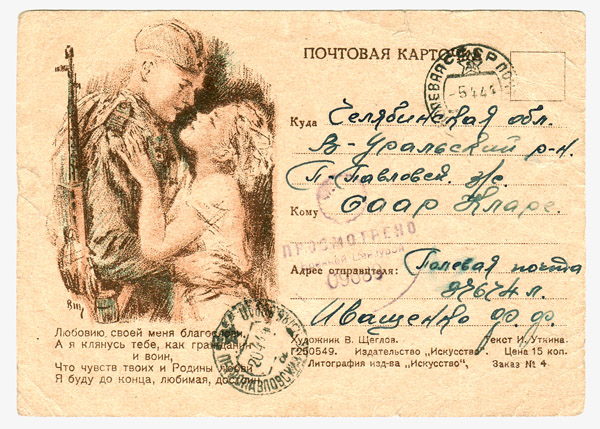 ПОЧТОВАЯ КАРТОЧКА
СССР
-5 4.44
Куда Челябинская обл.
В-Уральский р-н.
П-Павловск. з/с.
Кому Саар Кларе.
ПРОСМОТРЕНО
Военной Цензурой
Адрес отправителя: Полевая почта
Иващенко Ф. Ф.
Вщ
Любовию своей меня благослови,
А я клянусь тебе, как гражданин
и воин,
Что чувств твоих и Родины любви
Я буду до конца, любимая, достоин.
Художник В. Щеглов. Текст И. Уткина.
Г250549. Издательство „Искусство“. Цена 15 коп.
Литография изд-ва „Искусство“, Заказ № 4.